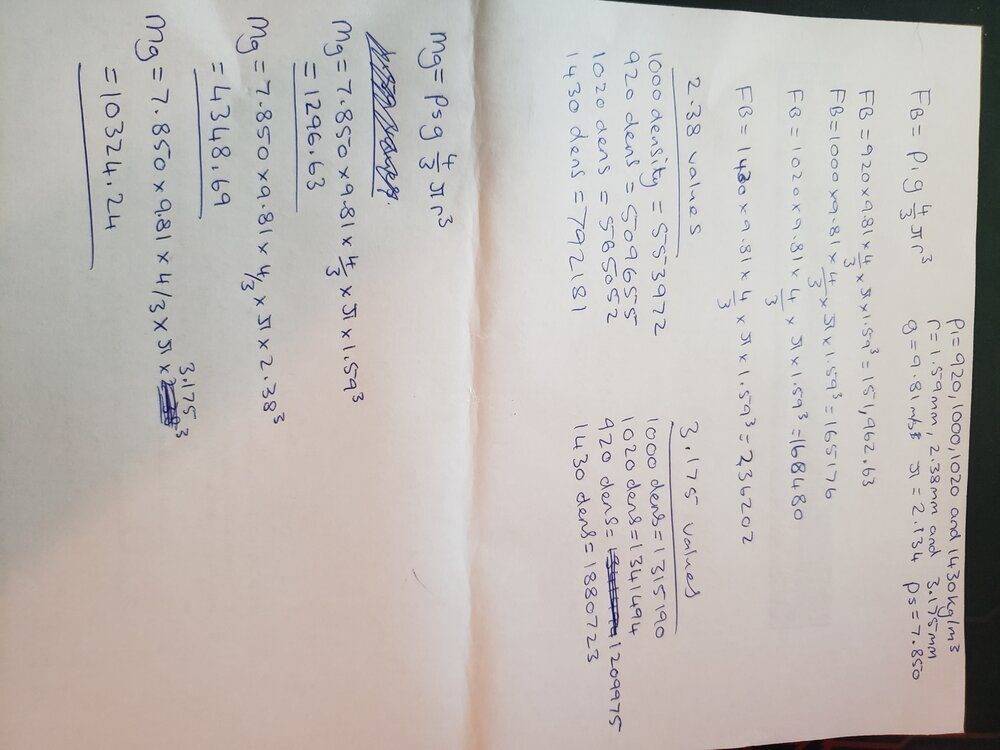 FB = ρ1 g 4/3 π r³
ρ1 = 920, 1000, 1020 and 1430 kg/m³
r = 1.59mm, 2.38mm and 3.175mm
g = 9.81 m/s² π = 2.134 ρs = 7.850
FB = 920 x 9.81 x 4/3 x π x 1.59³ = 151,962.63
FB = 1000 x 9.81 x 4/3 x π x 1.59³ = 165176
FB = 1020 x 9.81 x 4/3 x π x 1.59³ = 168480
FB = 1430 x 9.81 x 4/3 x π x 1.59³ = 236202
2.38 values
1000 density = 553972
920 dens = 509655
1020 dens = 565052
1430 dens = 792181
3.175 values
1000 dens = 1315190
1020 dens = 1341494
920 dens = 1209975
1430 dens = 1880723
Mg = ρsg 4/3 πr³
Mg = 7.850 x 9.81 x 4/3 x π x 1.59³
= 1296.63
Mg = 7.850 x 9.81 x 4/3 x π x 2.38³
= 4348.69
Mg = 7.850 x 9.81 x 4/3 x π x 3.175³
= 10324.24